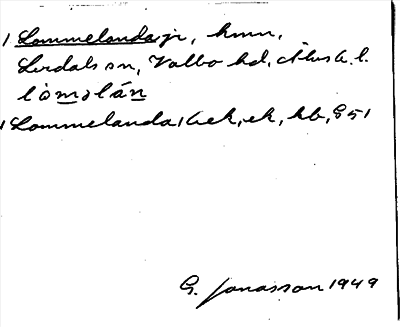 1 Lommelanda jr, hmn,
Lerdals sn, Valbo hd, Älvsb. l.
lòmǝlán
1 Lommelanda, ek, kb, 851
G. Jonasson 1949